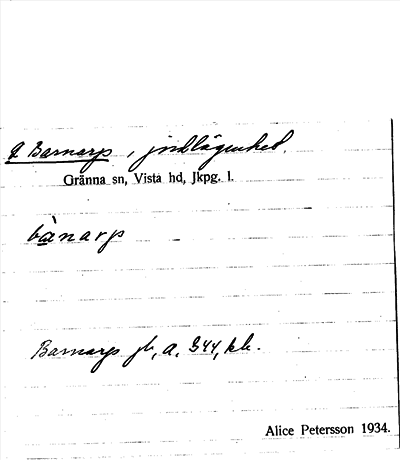 Barnarp, jordlägenhet.
Gränna sn, Vista hd, Jkpg. l.
bànarp
Barnarp jb, a. 344, kk.
Alice Petersson 1934.